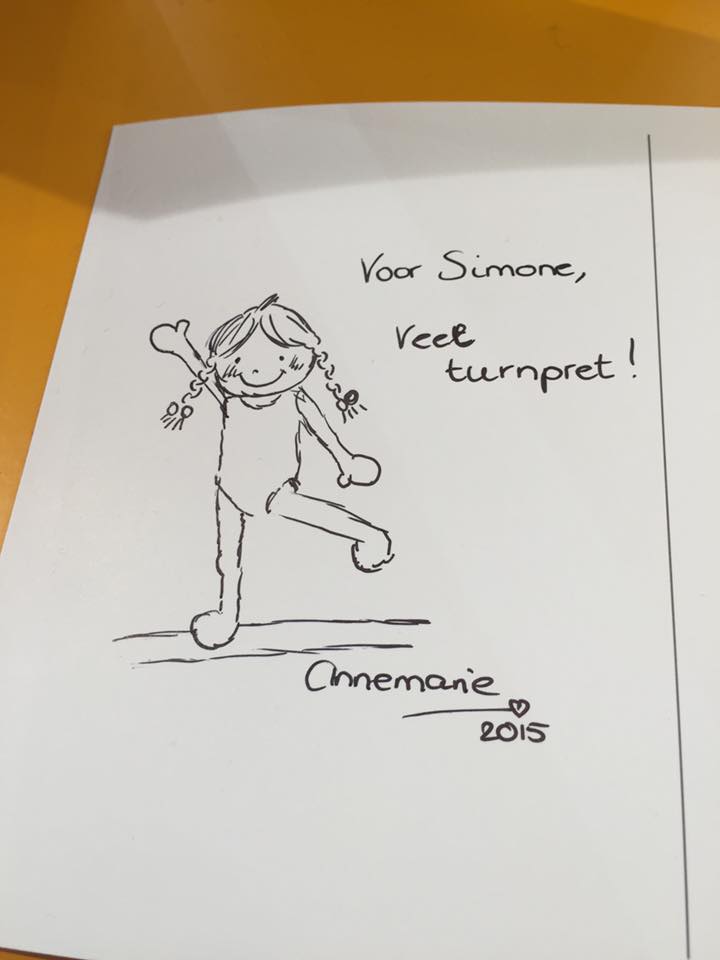 Voor Simone,
Veel
turnpret!
Annemarie
2015